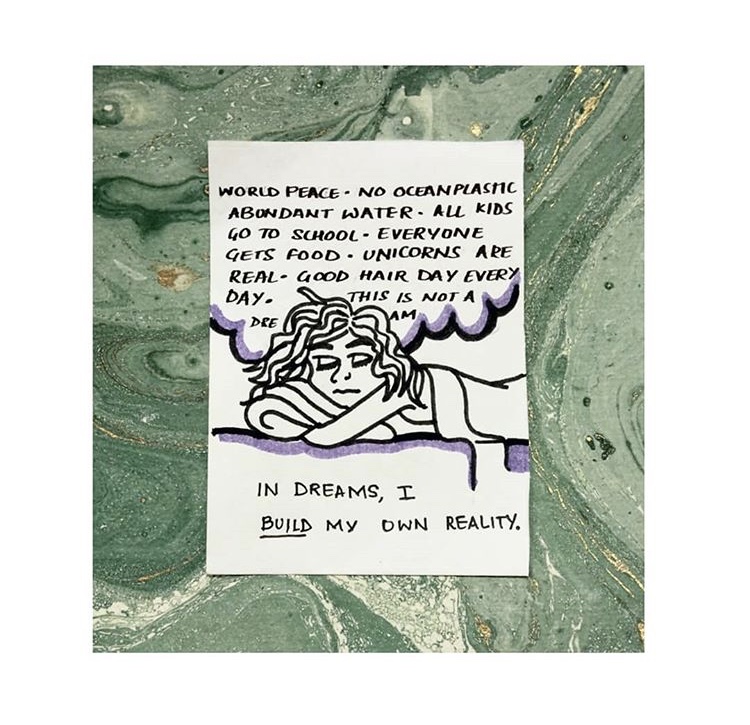 WORLD PEACE - NO OCEAN PLASTIC
ABONDANT WATER - ALL KIDS
GO TO SCHOOL - EVERYONE
GETS FOOD - UNICORNS ARE
REAL - GOOD HAIR DAY EVERY
DAY. THIS IS NOT A
DRE AM
IN DREAMS, I
BUILD MY OWN REALITY.